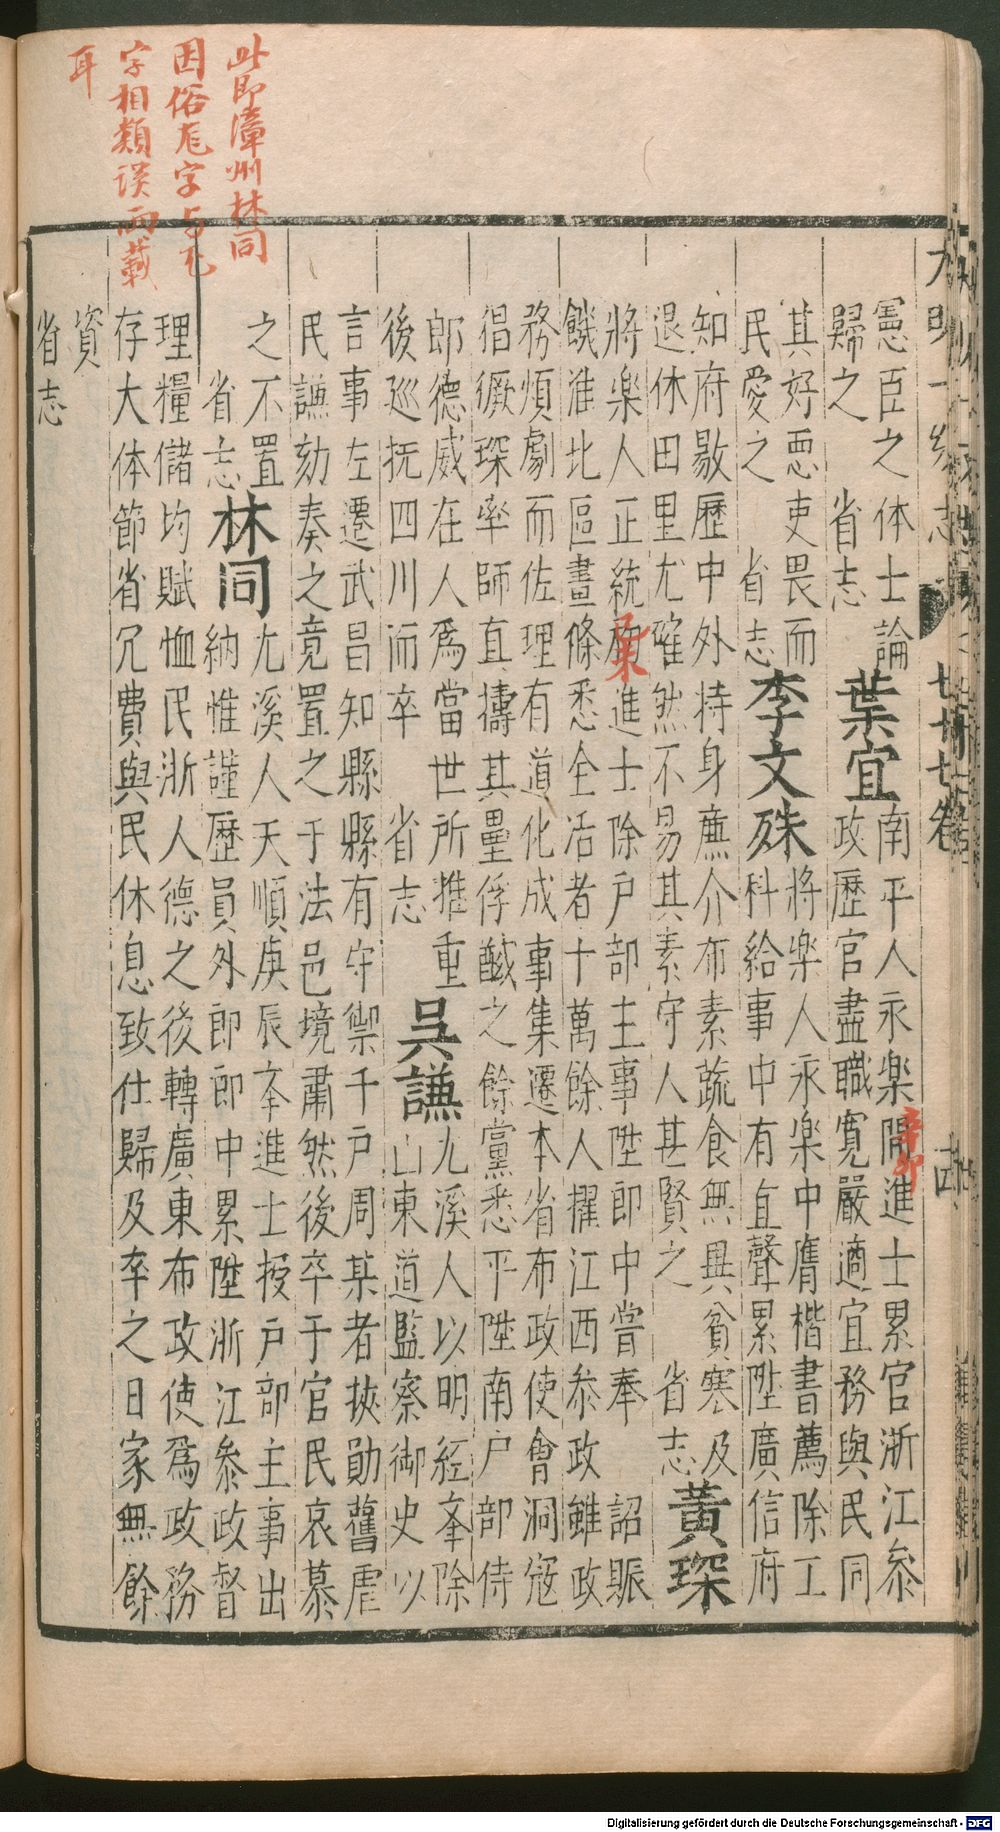 此即漳州林同
因俗尨字与尤
字相類誤而載
耳
憲臣之体士論
歸之 省志
葉宜
南平人永楽間進士累官浙江叅
辛卯
政歷官盡職寬嚴適宜務與民同
其好悪吏畏而
民愛之 省志
李文殊
將楽人永楽中膺楷書薦除工
科給事中有直聲累陞廣信府
知府敭歷中外持身亷介布素蔬食無異貧寒及
退休田里尤確然不易其素守人甚賢之 省志
黃琛
將楽人正統 進士除户部主事陞郎中嘗奉 詔賑
己未
饑淮北區畫條悉全活者十萬餘人擢江西叅政雖政
務煩劇而佐理有道化成事集遷本省布政使會洞宼
猖獗琛率師直擣其壘俘馘之餘黨悉平陞南户部侍
郎德威在人爲當世所推重
後巡抚四川而卒 省志
吳謙
尤溪人以明經夆除
山東道監察御史以
言事左遷武昌知縣縣有守禦千户周某者挾勛舊虐
民謙劾奏之竟置之于法邑境肅然後卒于官民哀慕
之不置
省志
林同
尤溪人天順庚辰夆進士授户部主事出
納惟謹歷員外郎郎中累陞浙江叅政督
理糧儲均賦恤民浙人德之後轉廣東布政使爲政務
存大体節省冗費與民休息致仕歸及卒之日家無餘
資
省志
Digitalisierung gefördert durch die Deutsche Forschungsgemeinschaft - DFG